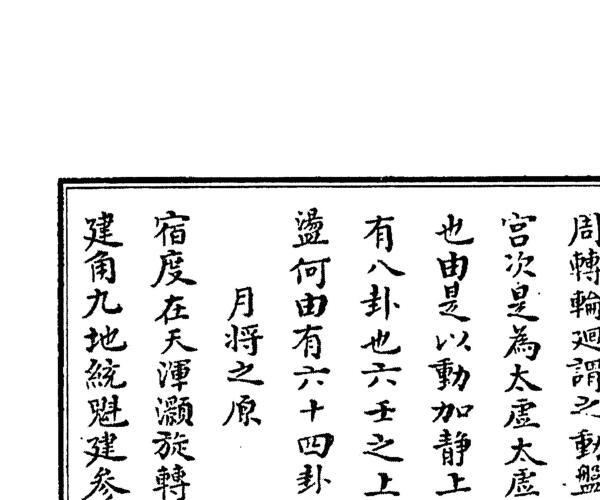 周轉輪廻謂之動盤
宮次是為太虛太虛
也由是以動加静上
有八卦也六壬之上
盪何由有六十四卦
月将之原
宿度在天渾灝旋轉
建角九地統魁建参